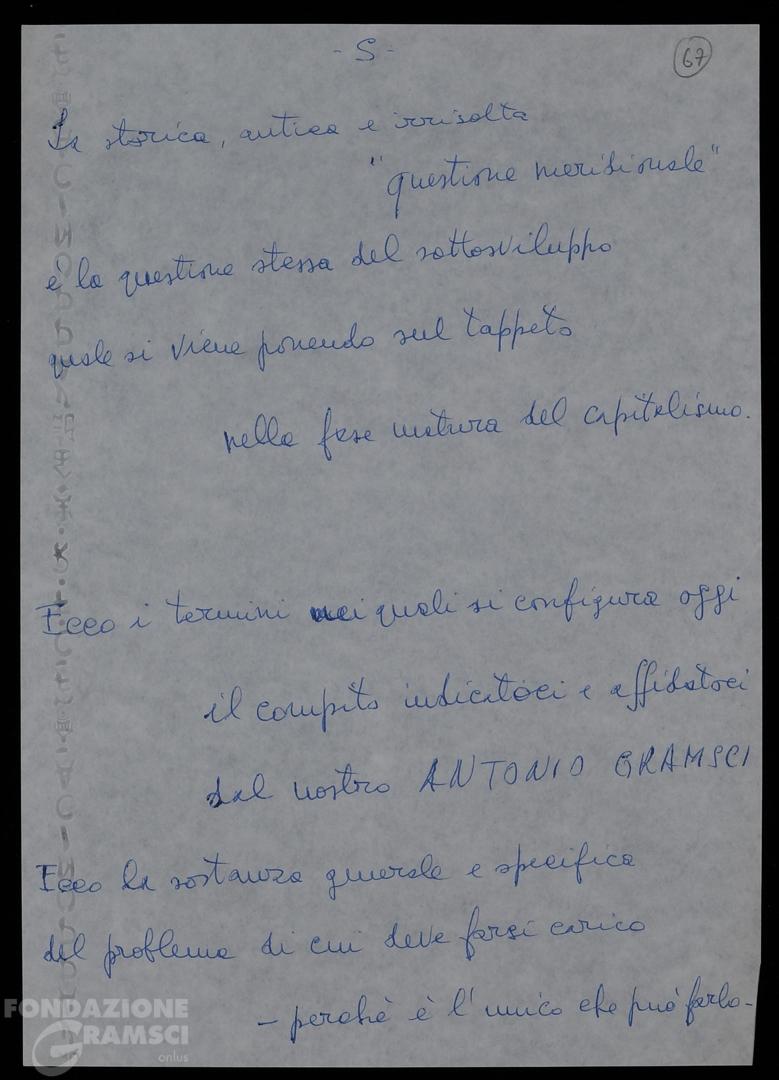 - 5 -
67
La storica, antica e irrisolta
"questione meridionale"
è la questione stessa del sottosviluppo
quale si viene ponendo sul tappeto
nella fase matura del capitalismo.
Ecco i termini nei quali si configura oggi
il compito indicatoci e affidatoci
dal nostro ANTONIO GRAMSCI
Ecco la sostanza generale e specifica
del problema di cui deve farsi carico
- perché è l'unico che può farlo -
FONDAZIONE
GRAMSCI
onlus